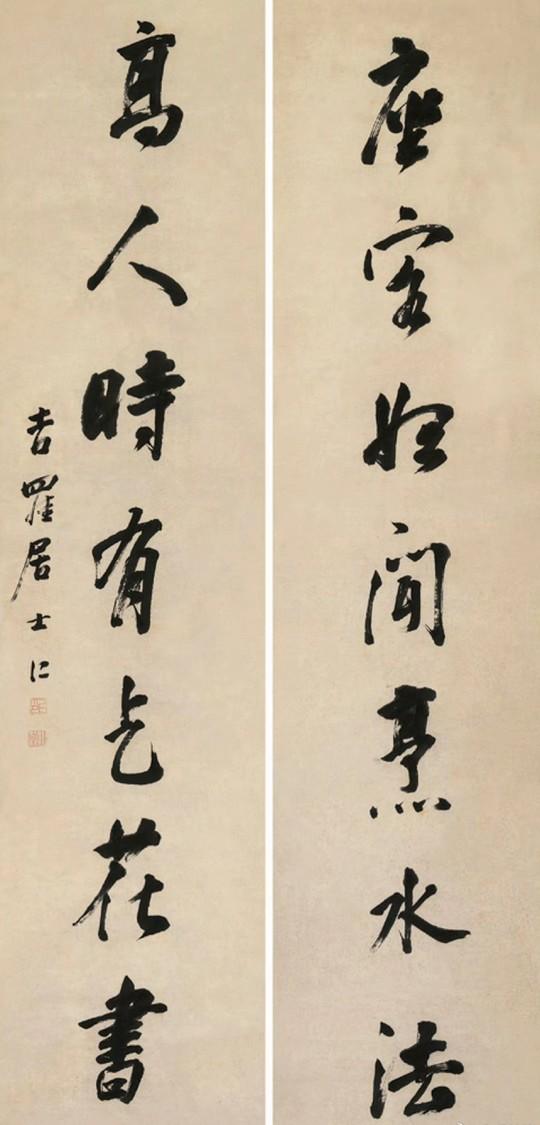 座客始聞烹水法
高人時有乞花書
吉羅居士仁